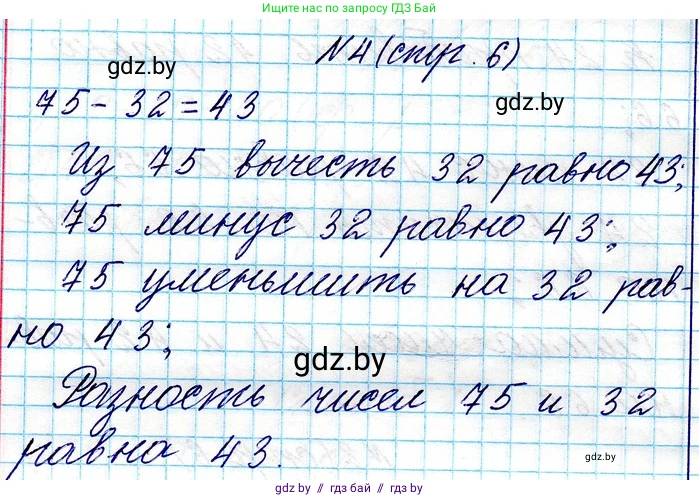 Ищите нас по поисковому запросу: ГДЗ Бай
N4 (стр. 6)
gdz.by
75 - 32 = 43
gdz.by
Из 75 вычесть 32 равно 43;
75 минус 32 равно 43;
75 уменьшить на 32 рав-
но 43;
gdz.by
Разность чисел 75 и 32
равна 43.
gdz.by
gdz.by // гдз бай // gdz.by